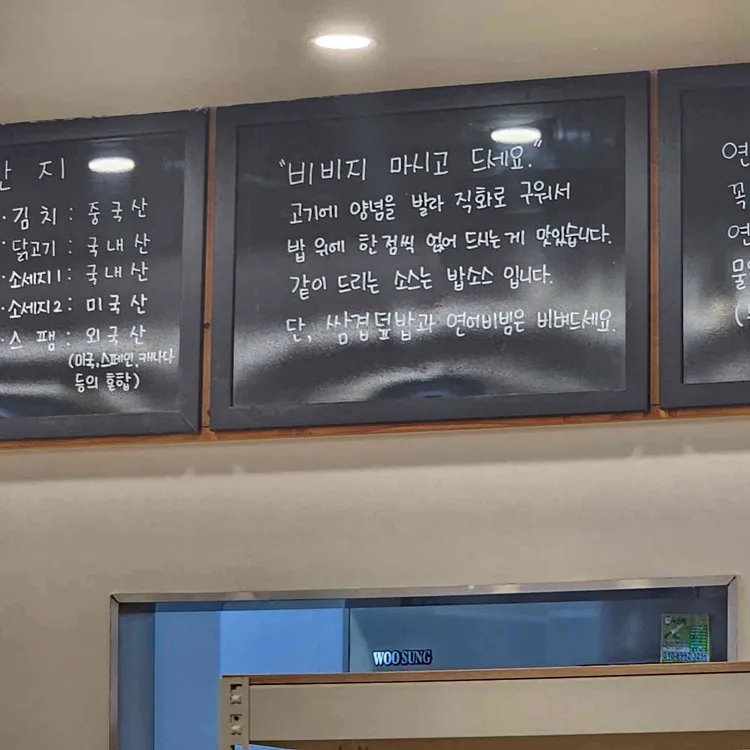 산 지
· 김 치 : 중 국 산
· 닭고기 : 국 내 산
· 소세지1 : 국 내 산
· 소세지2 : 미 국 산
· 스 팸 : 외 국 산
(미국, 스페인, 캐나다
등의 혼합)
"비비지 마시고 드세요."
고기에 양념을 발라 직화로 구워서
밥 위에 한점씩 얹어 드시는게 맛있습니다.
같이 드리는 소스는 밥소스 입니다.
단, 쌈겹덮밥과 연어비빔은 비벼드세요.
연
꼭
연
물
WOO SUNG